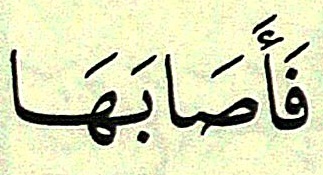 فَأَصَابَهَا